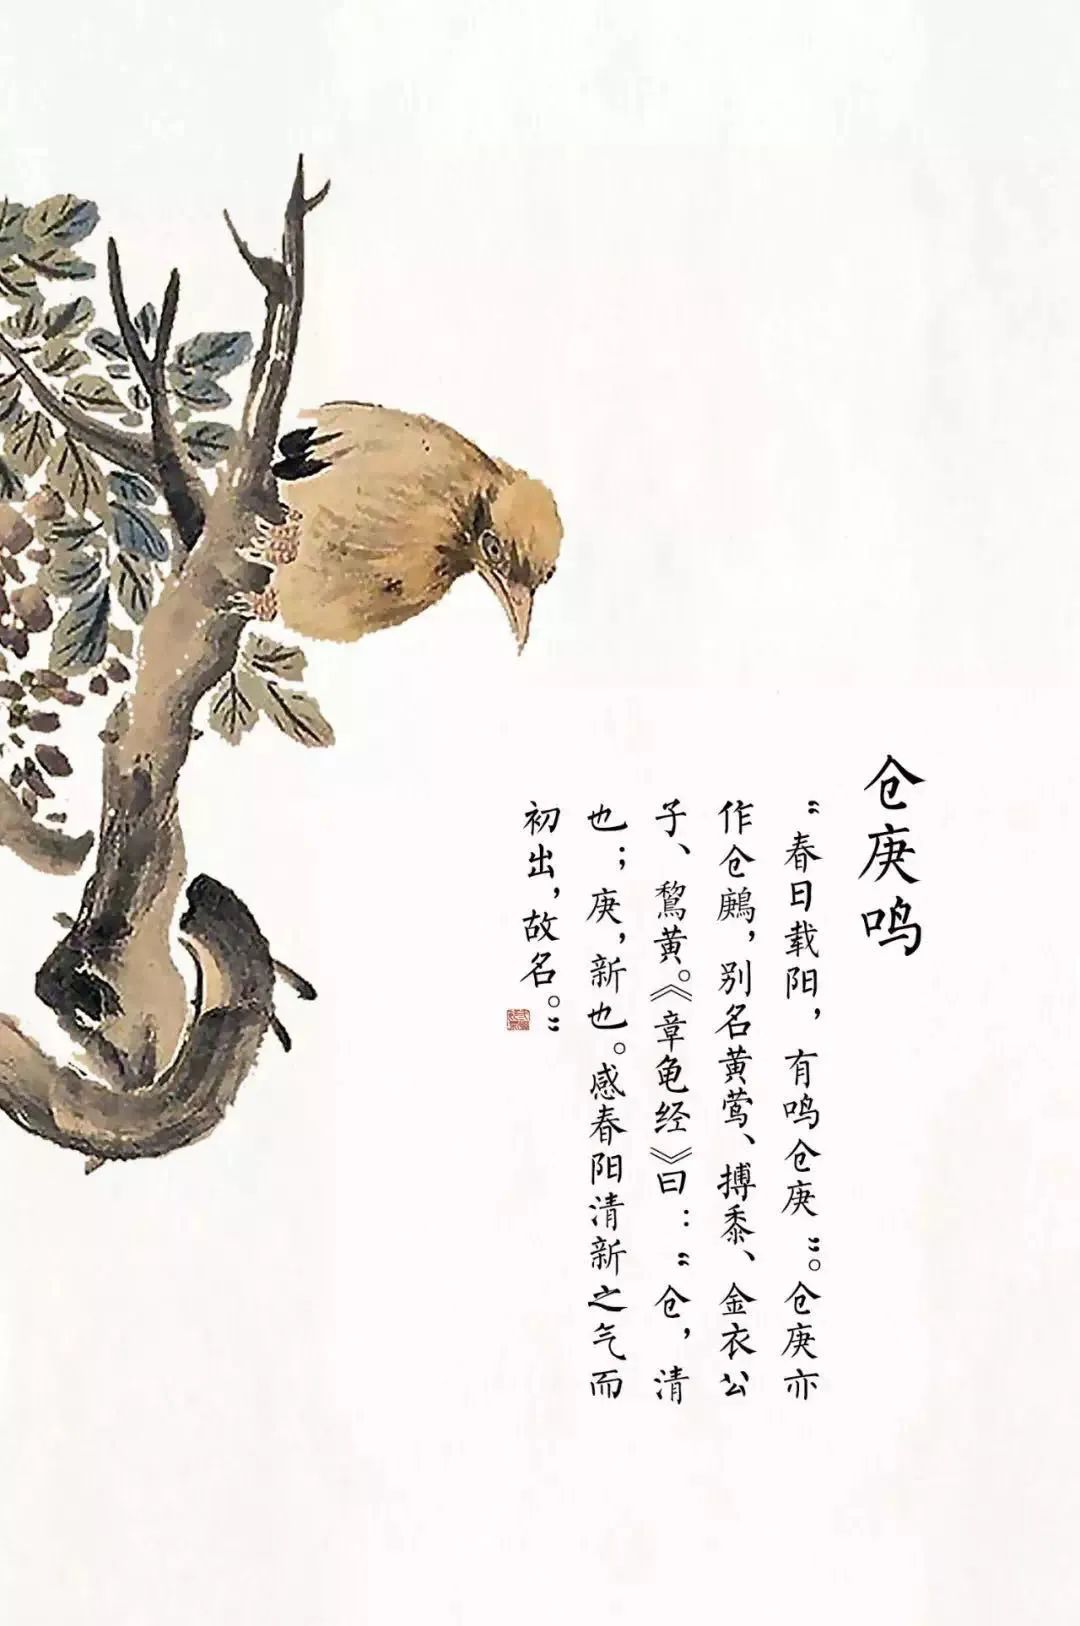 仓庚鸣
“春日载阳，有鸣仓庚”。仓庚亦
作仓鶊，别名黄莺、搏黍、金衣公
子、鵹黄。《章龟经》曰：“仓，清
也；庚，新也。感春阳清新之气而
初出，故名。”